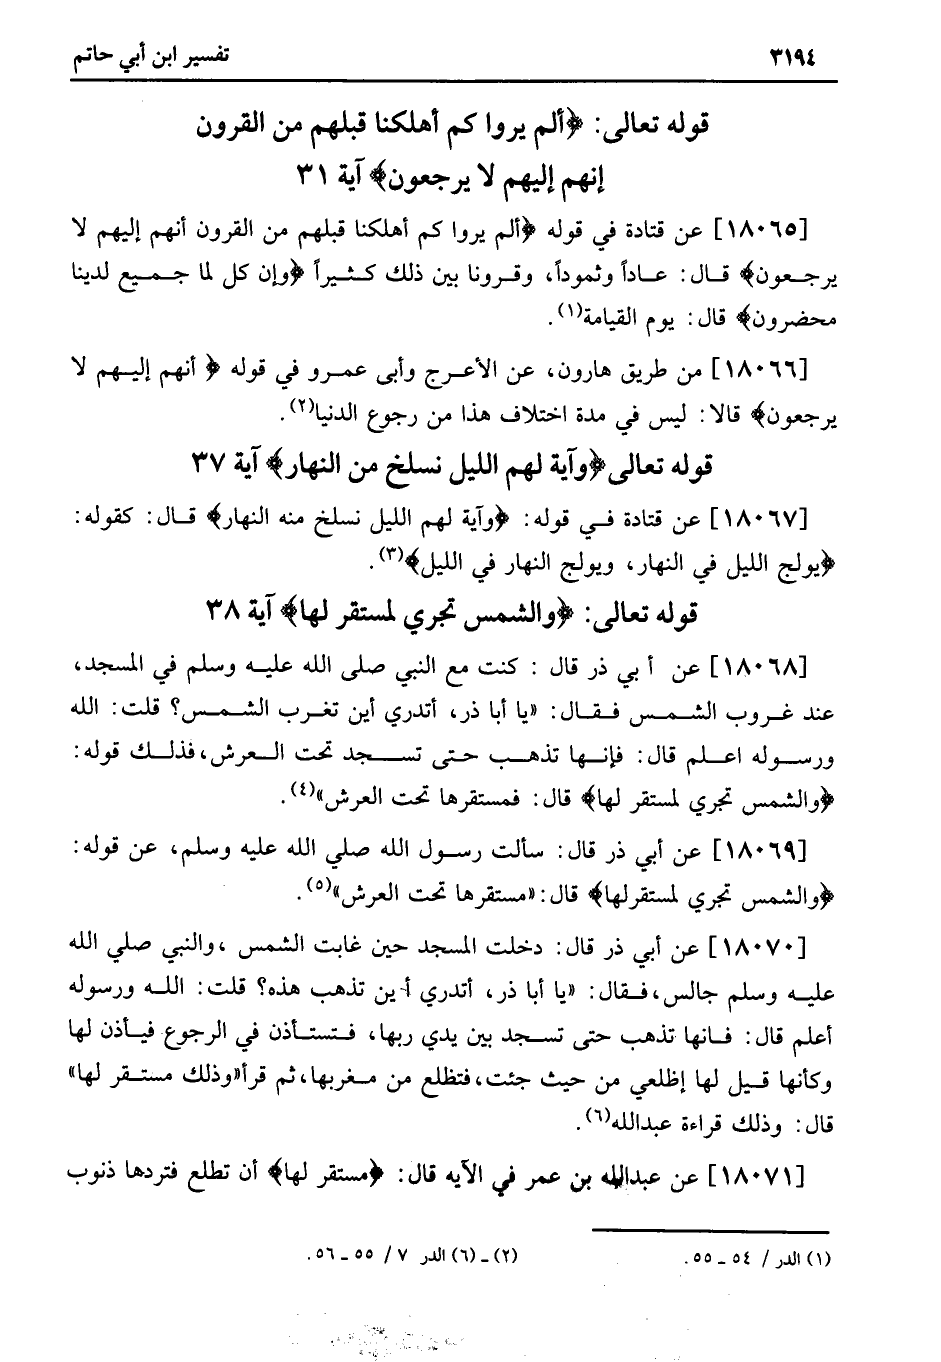 ٣١٩٤ تفسير ابن أبي حاتم
قوله تعالى: ﴿ألم يروا كم أهلكنا قبلهم من القرون
إنهم إليهم لا يرجعون﴾ آية ٣١
[١٨٠٦٥] عن قتادة في قوله ﴿ألم يروا كم أهلكنا قبلهم من القرون أنهم إليهم لا
يرجعون﴾ قال: عاداً وثموداً، وقرونا بين ذلك كثيراً ﴿وإن كل لما جميع لدينا
محضرون﴾ قال: يوم القيامة(١).
[١٨٠٦٦] من طريق هارون، عن الأعرج وأبى عمرو في قوله ﴿ أنهم إليهم لا
يرجعون﴾ قالا: ليس في مدة اختلاف هذا من رجوع الدنيا(٢).
قوله تعالى﴿وآية لهم الليل نسلخ من النهار﴾ آية ٣٧
[١٨٠٦٧] عن قتادة في قوله: ﴿وآية لهم الليل نسلخ منه النهار﴾ قال: كقوله:
﴿يولج الليل في النهار، ويولج النهار في الليل﴾(٣).
قوله تعالى: ﴿والشمس تجري لمستقر لها﴾ آية ٣٨
[١٨٠٦٨] عن أ بي ذر قال : كنت مع النبي صلى الله عليه وسلم في المسجد،
عند غروب الشمس فقال: «يا أبا ذر، أتدري أين تغرب الشمس؟ قلت: الله
ورسوله اعلم قال: فإنها تذهب حتى تسجد تحت العرش،فذلك قوله:
﴿والشمس تجري لمستقر لها﴾ قال: فمستقرها تحت العرش»(٤).
[١٨٠٦٩] عن أبي ذر قال: سألت رسول الله صلي الله عليه وسلم، عن قوله:
﴿والشمس تجري لمستقرلها﴾ قال:«مستقرها تحت العرش»(٥).
[١٨٠٧٠] عن أبي ذر قال: دخلت المسجد حين غابت الشمس ،والنبي صلي الله
عليه وسلم جالس،فقال: «يا أبا ذر، أتدري أين تذهب هذه؟ قلت: الله ورسوله
أعلم قال: فانها تذهب حتى تسجد بين يدي ربها، فتستأذن في الرجوع فيأذن لها
وكأنها قيل لها إظلعي من حيث جئت،فتظلع من مغربها،ثم قرأ«وذلك مستقر لها»
قال: وذلك قراءة عبدالله(٦).
[١٨٠٧١] عن عبدالله بن عمر في الآيه قال: ﴿مستقر لها﴾ أن تطلع فتردها ذنوب
(١) الدر / ٥٤ ـ ٥٥.
(٢) ـ (٦) الدر ٧ / ٥٥ ـ ٥٦.